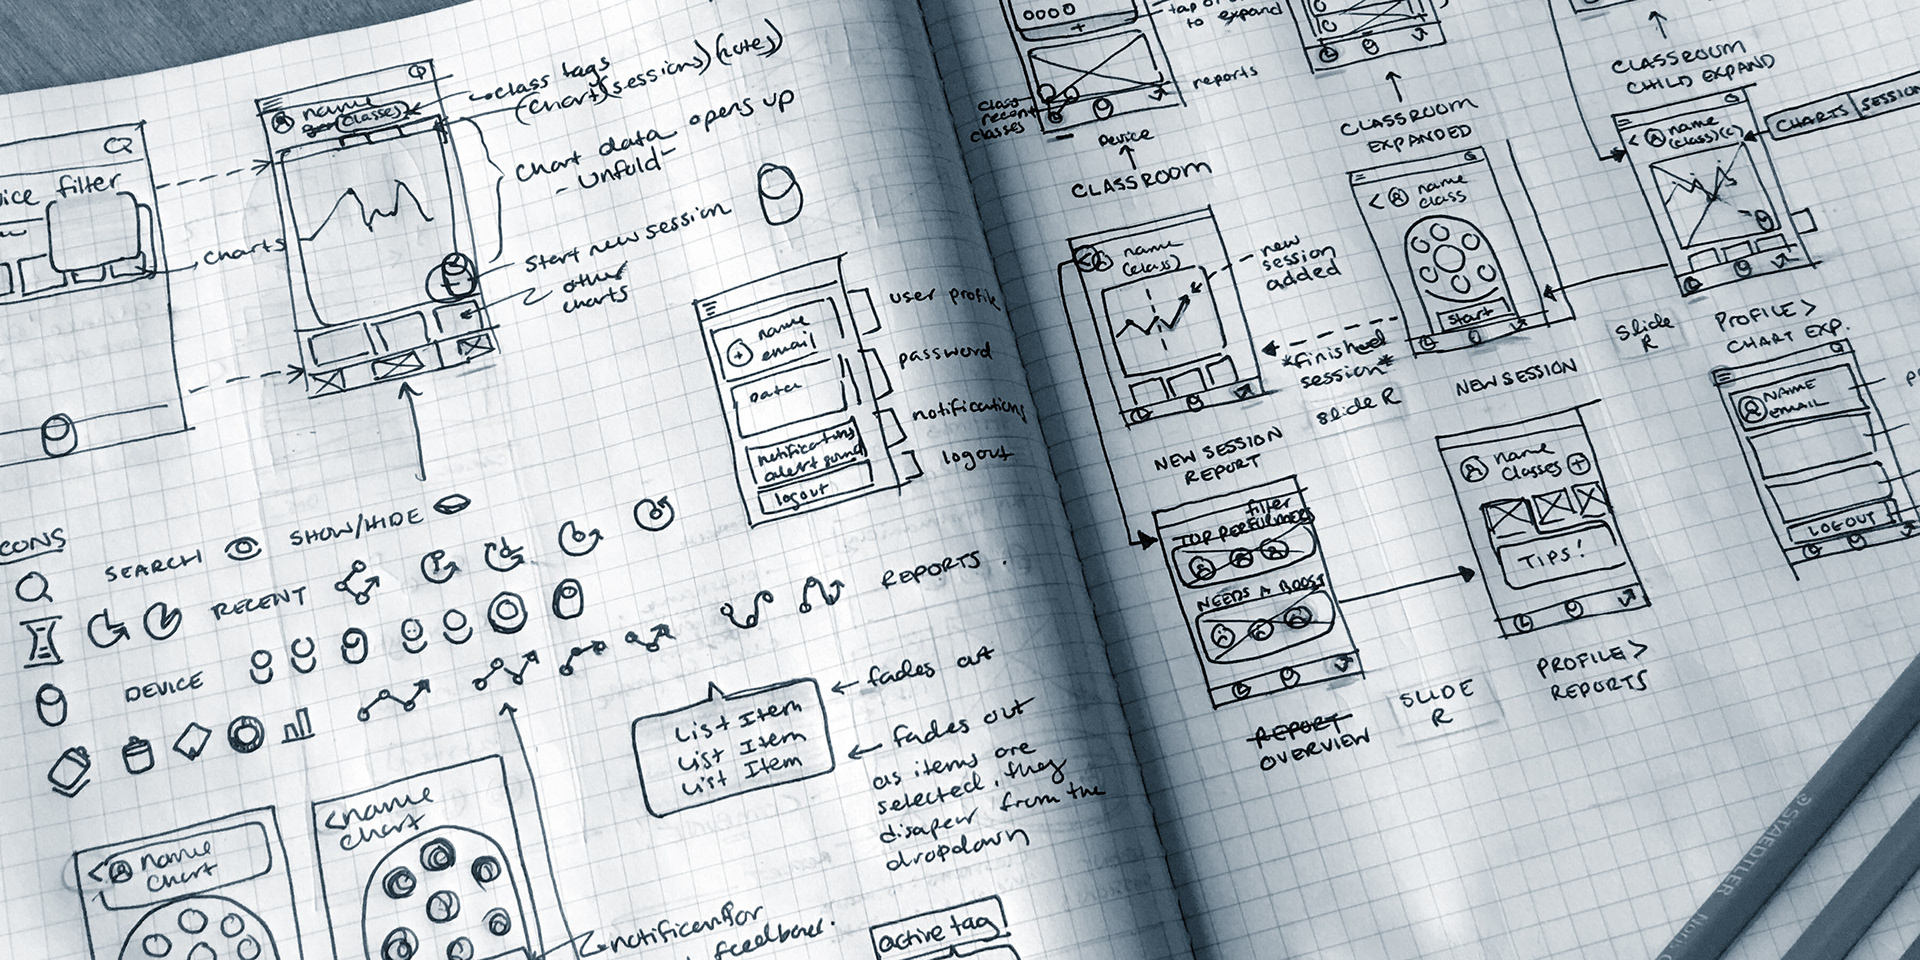 name
(classes)
class tags
(chart)(sessions)(notes)
chart data opens up
- unfold -
filter
charts
start new session
other
charts
name
email
data
notifications
alert sound
logout
user profile
password
notifications
logout
SEARCH
SHOW/HIDE
RECENT
DEVICE
REPORTS
List Item
List Item
List Item
fades out
fades out
as items are
selected, they
disapear from the
dropdown
name
chart
<name
chart
feedback.
active tag
to expand
reports
class
recent
classes
Device
CLASSROOM
CLASSROOM
EXPANDED
CLASSROOM
CHILD EXPAND
name
(class)
new
session
added
*finished
session*
slide R
NEW SESSION
REPORT
name
class
start
NEW SESSION
slide
R
name
(class)(c)
CHARTS
SESSION
PROFILE >
CHART EXP.
filter
TOP PERFORMERS
NEEDS A BOOST
REPORT
OVERVIEW
SLIDE
R
name
classes
TIPS!
PROFILE >
REPORTS
NAME
EMAIL
LOGOUT
STAEDTLER